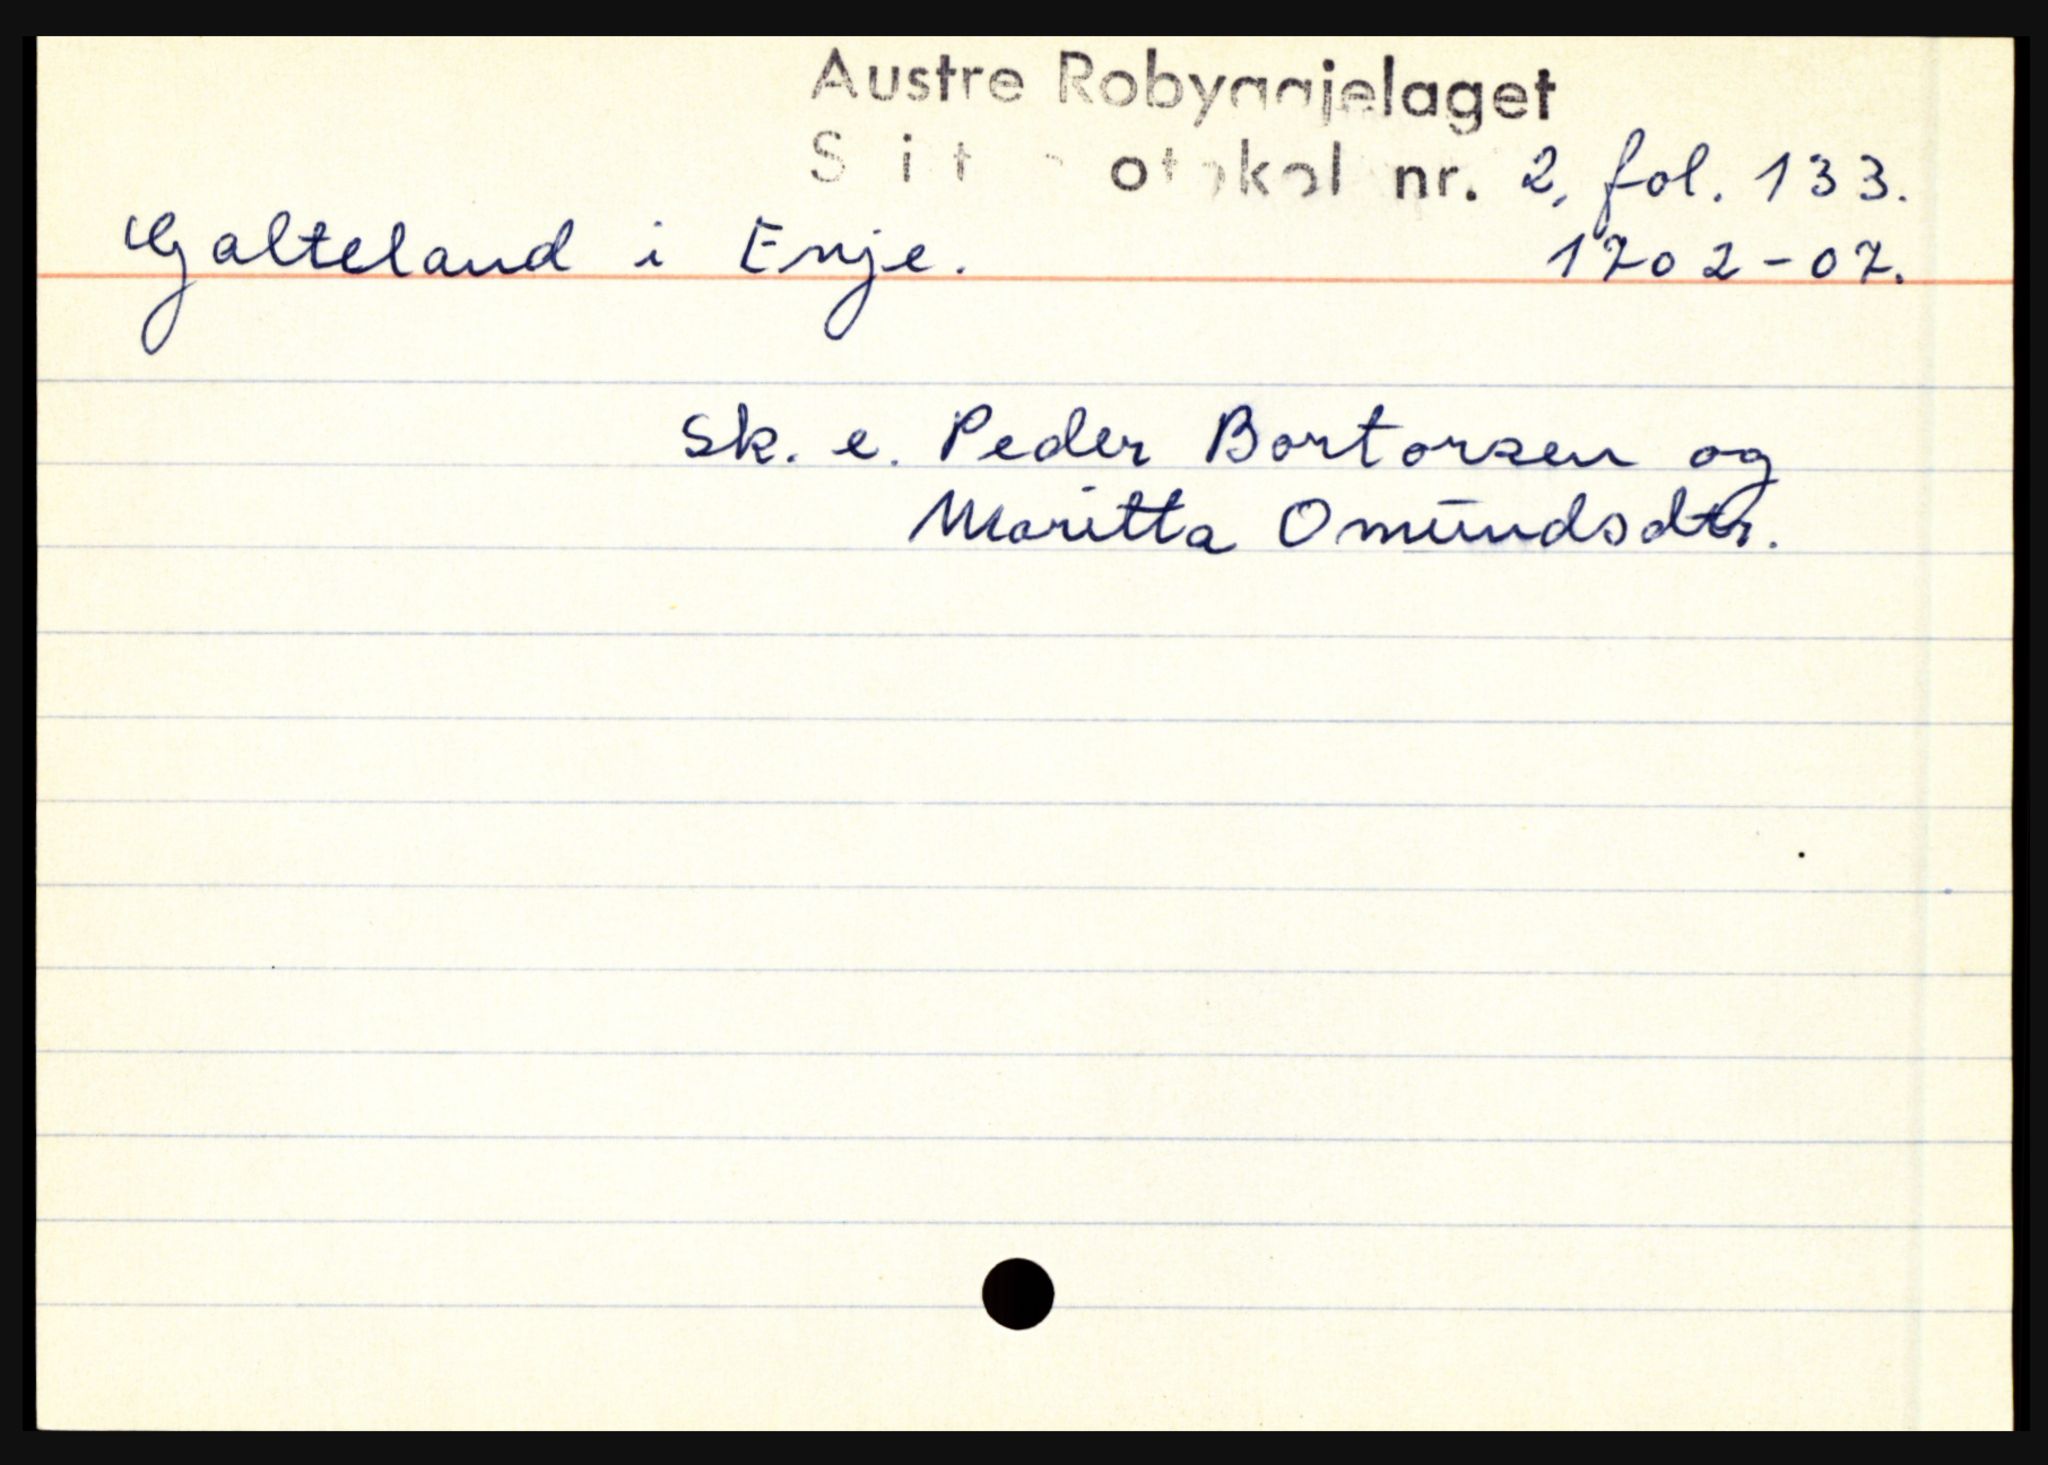 Austre Robyggjelaget
nr. 2, fol. 133.
Galteland i Evje. 1702-07.
Sk. e. Peder Bortorsen og
Maritta Omundsdtr.